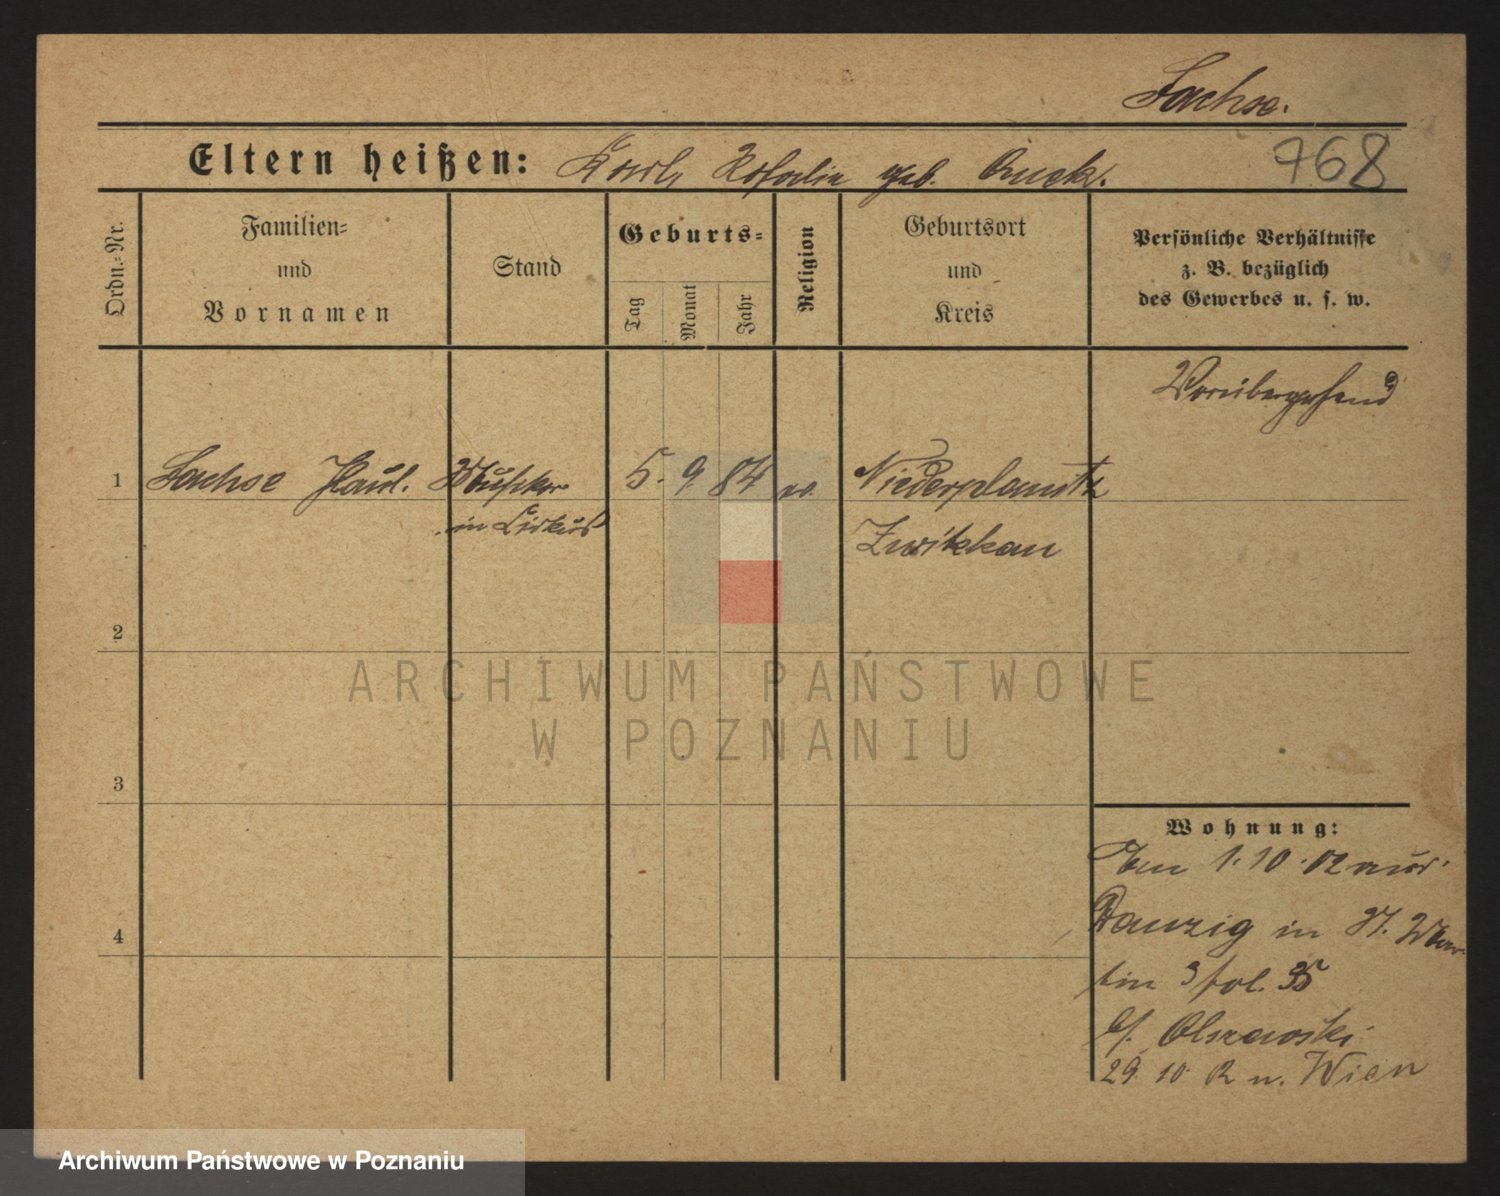 Sachse.
Eltern heißen: Karl, Rosalie geb. Quek.
768
Ordn.-Nr.
Familien-
und
Vornamen
Stand
Geburts-
Tag
Monat
Jahr
Religion
Geburtsort
und
Kreis
Persönliche Verhältnisse
z. B. bezüglich
des Gewerbes u. s. w.
Vorübergehend
1 Sachse Paul. Musiker 5. 9. 84 Niederplanitz
in Cirkus Zwikkau
2
ARCHIWUM PAŃSTWOWE
W POZNANIU
3
Wohnung:
1.10.02 aus
4
Danzig in St. Mar-
tin 35
b/. Olszewski
29 10 02 n. Wien
Archiwum Państwowe w Poznaniu